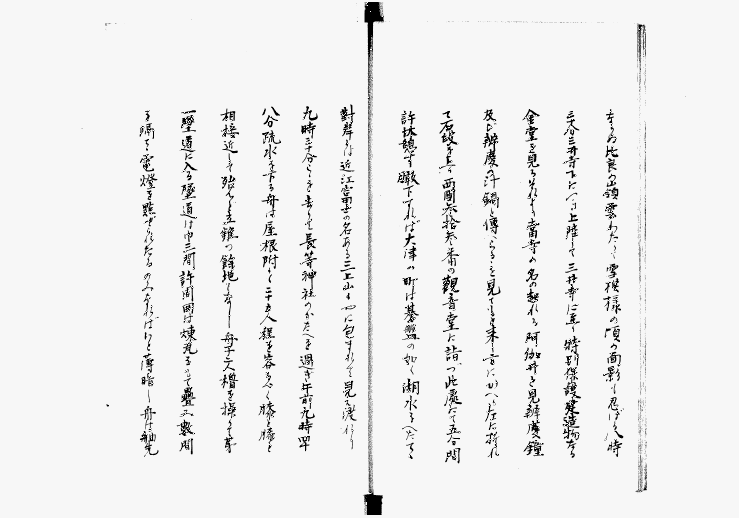 比良の山嶺雲わたりて雪模様の頃の面影も忍ばる八時
三十分三井寺下につき上陸して三井寺に至り特別保護建造物なる
金堂を見るそれより当寺の名の起れる阿伽井を見辨慶鐘
及び辨慶の汁鍋と傳へらるるを見てもと来し方にかへり左に折れ
て石段を上り西国三拾三番の観音堂に詣づ此處にて五分間
許休憩す瞰下すれば大津の町は碁盤の如く湖水をへだてて
對岸には近江富士の名ある三上山もやに包まれて見え渡れり
九時三十分ここを去りて長等神社のかたへを過ぎ午前九時四十
八分疏水を下る舟は屋根附にて二十五人程を容るべく膝と膝と
相接近して殆んど立錐の餘地もなし舟子二人櫓を操りて第
一墜道に入る墜道は巾三間許周囲は煉瓦にて疊み数間
を隔てて電燈を點ぜられたるのみなればいと薄暗し舟は舳先